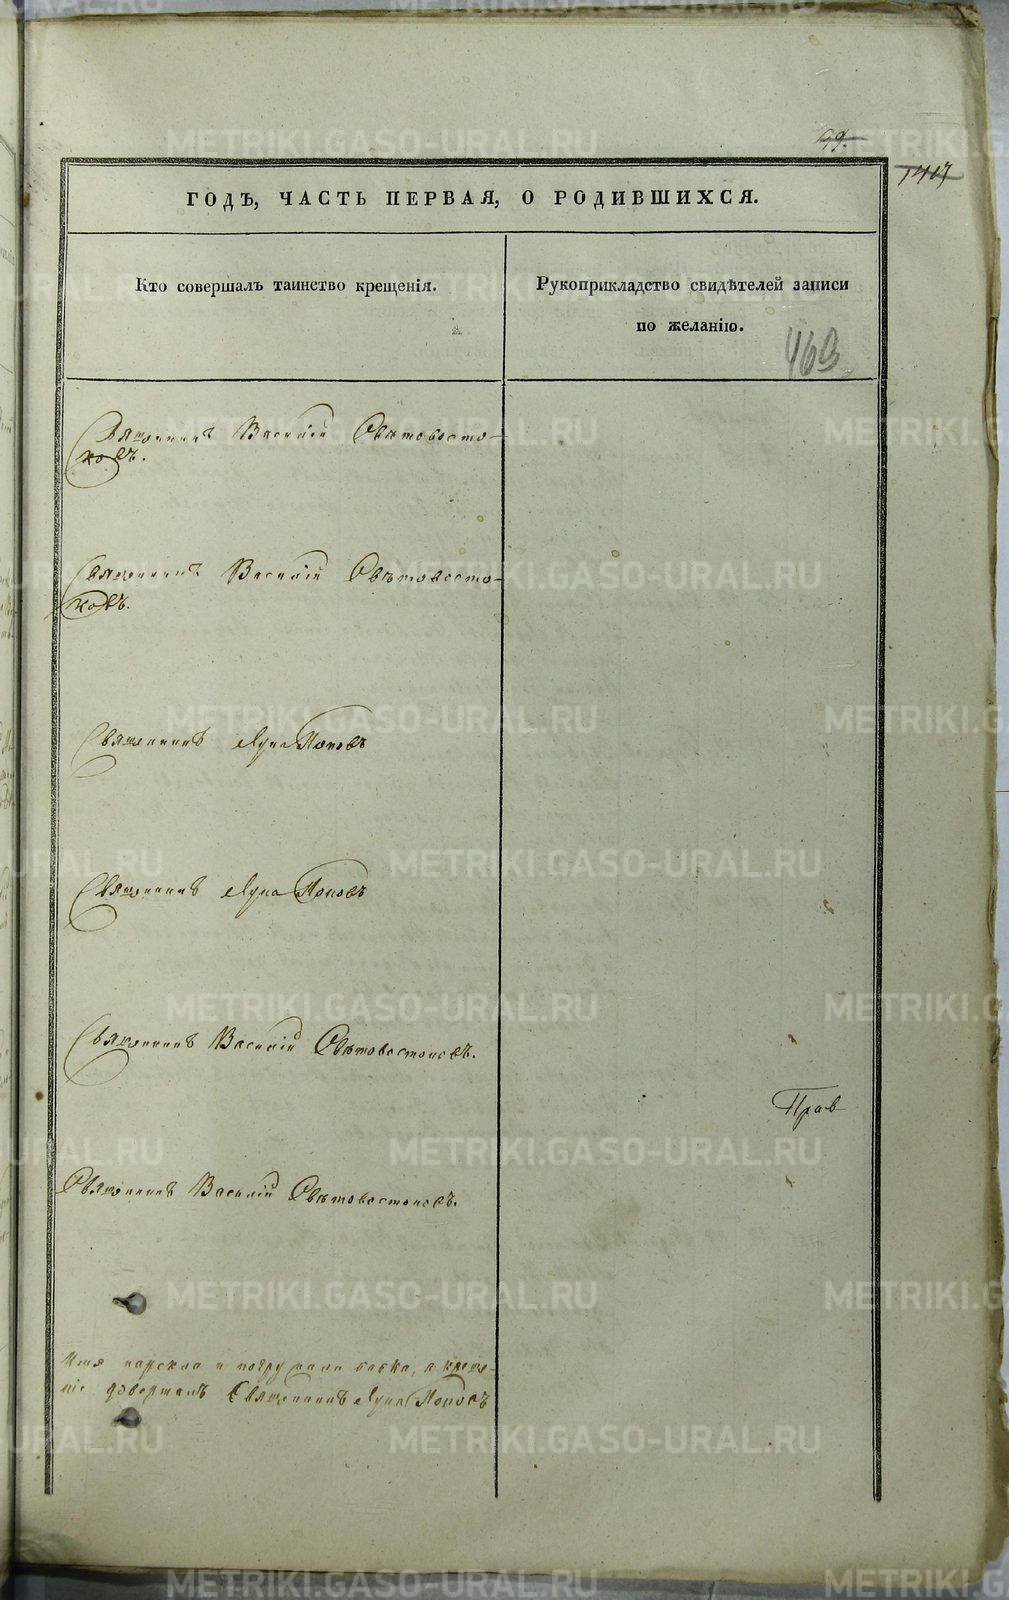 49.
1417
ГОДЪ, ЧАСТЬ ПЕРВАЯ, О РОДИВШИХСЯ.
Кто совершалъ таинство крещенія.
Рукоприкладство свидѣтелей записи
по желанію.
469
Священникъ Василій Свѣтовосто-
ковъ.
Священникъ Василій Свѣтовосто-
ковъ.
Священникъ Лука Поповъ
Священникъ Лука Поповъ
Священникъ Василій Свѣтовостоковъ.
Прав
Священникъ Василій Свѣтовостоковъ.
Имя нарекла и погружала бабка, а креще-
ніе довершалъ Священникъ Лука Поповъ
METRIKI.GASO-URAL.RU